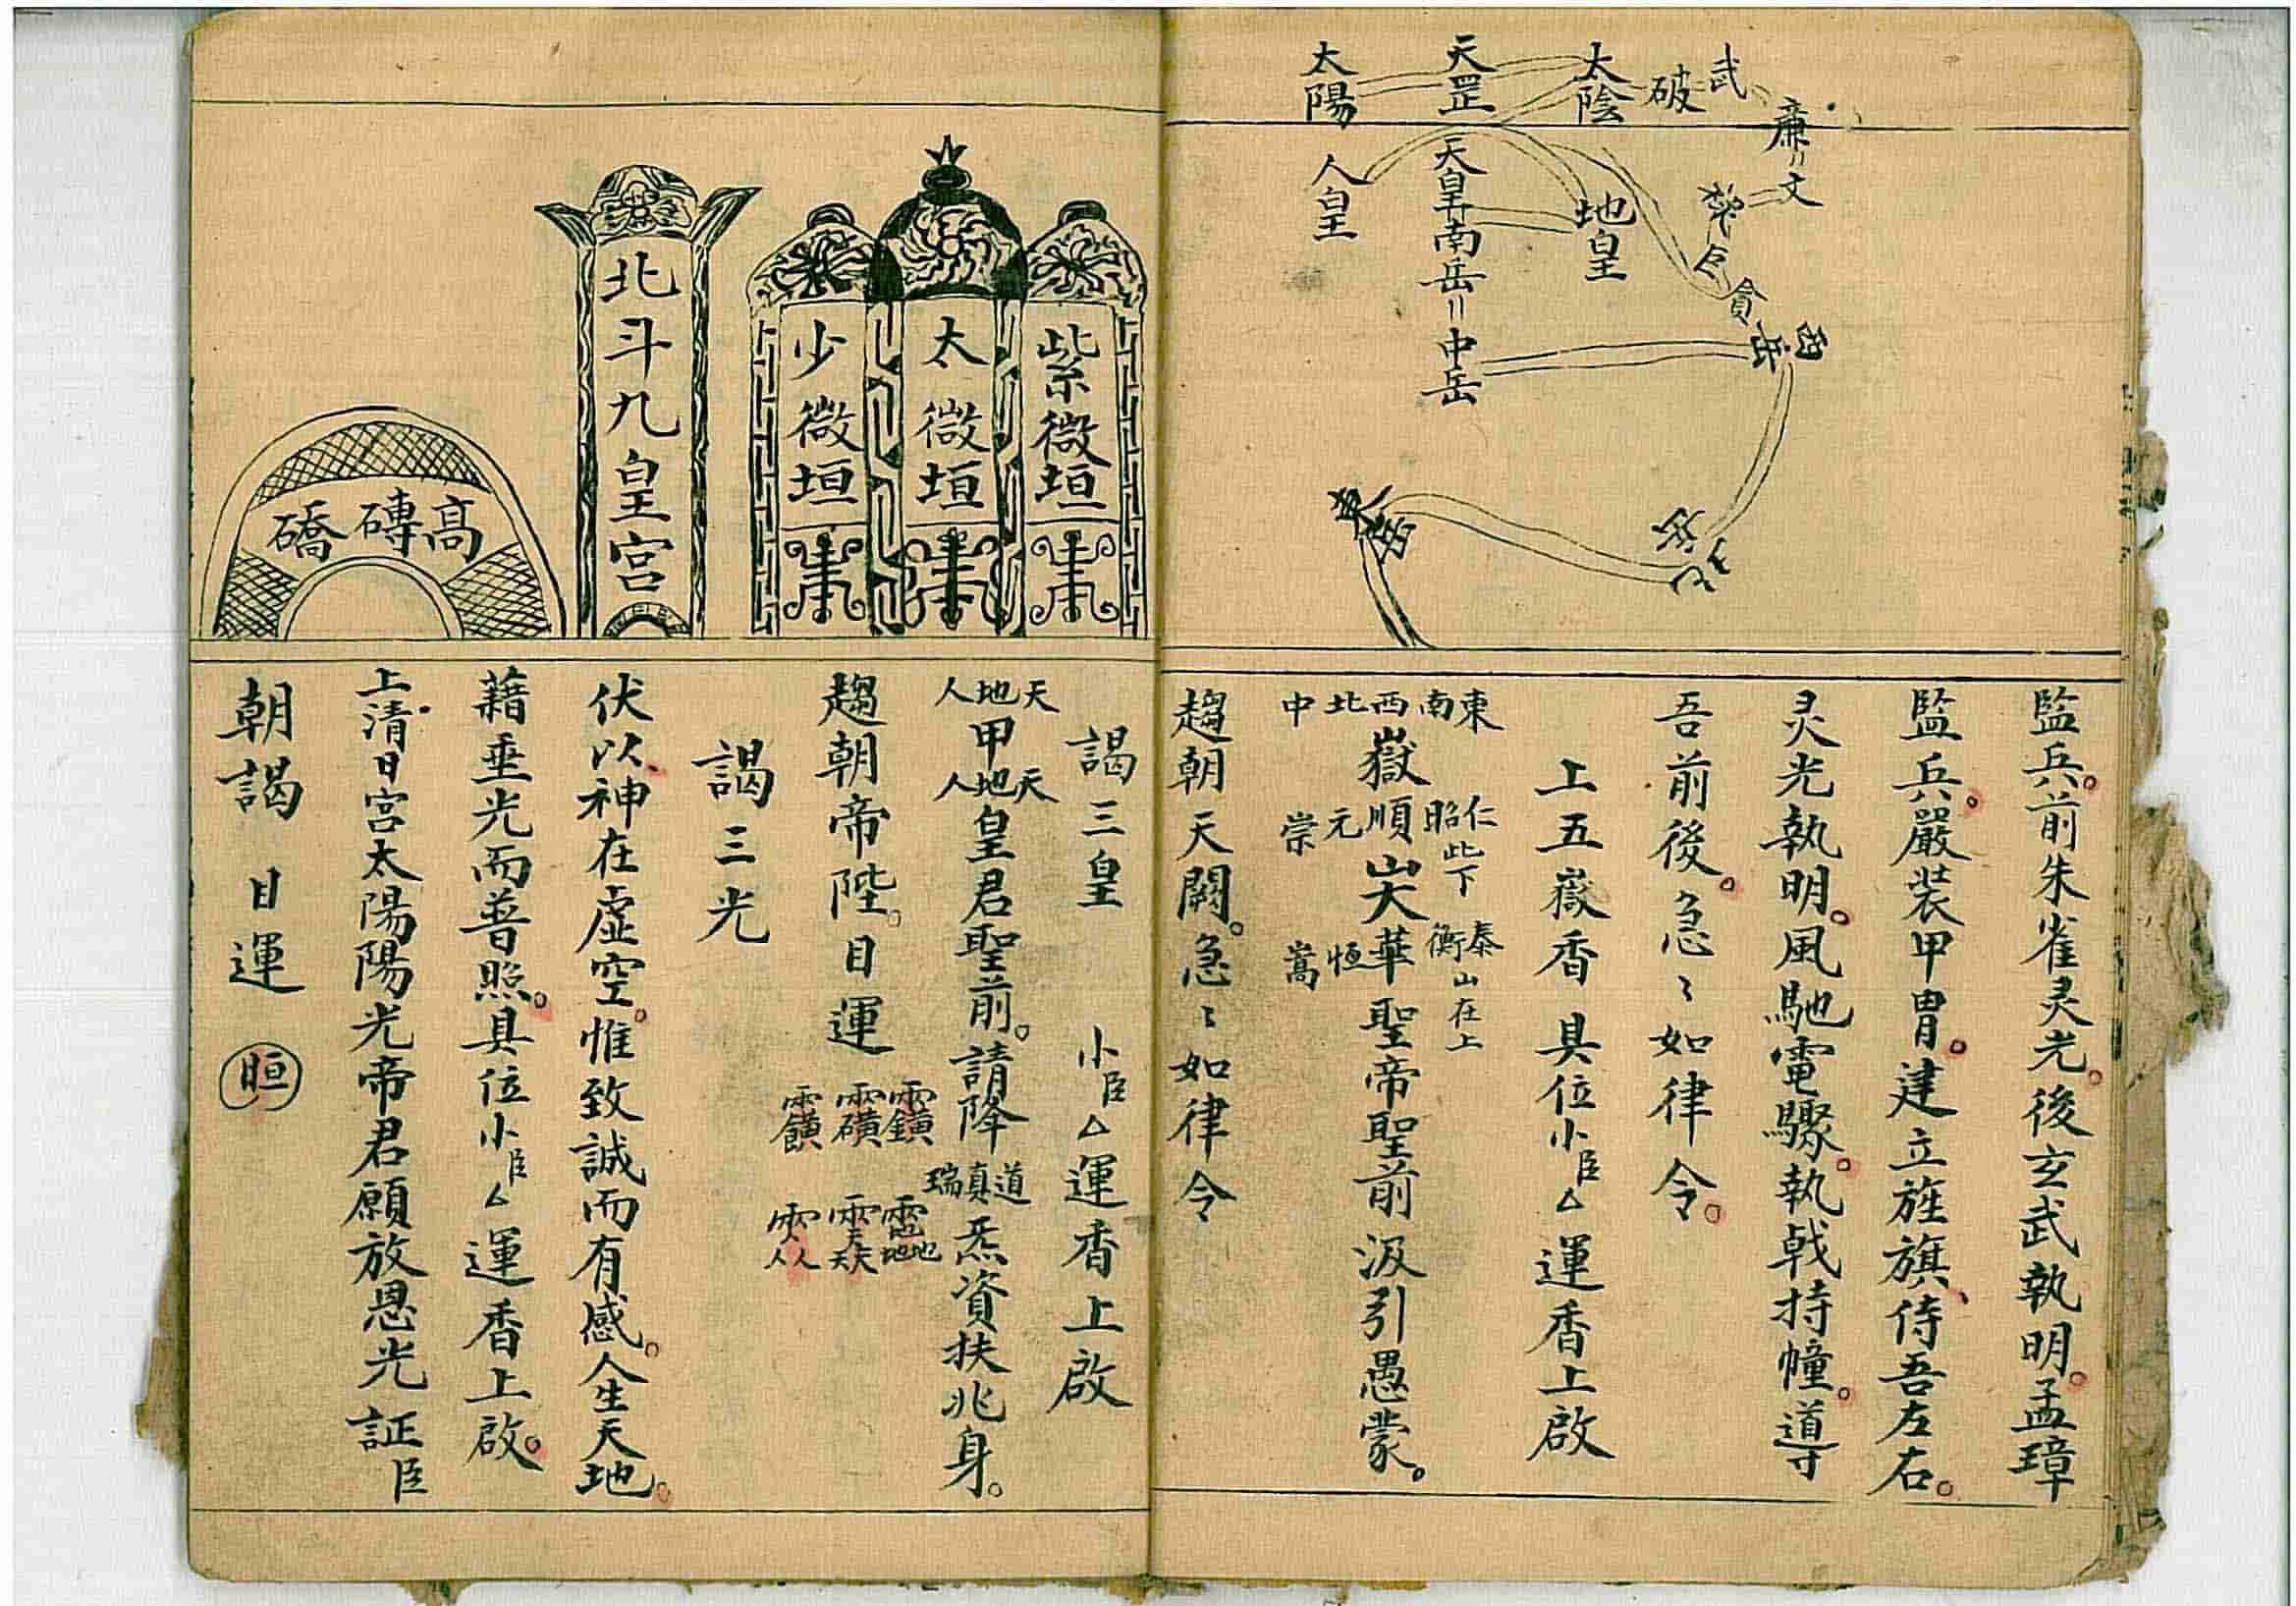 太陽
天罡
太陰
破
武
廉〃文
祿
巨
貪
人皇
天皇
地皇
南岳〃中岳
西岳
北岳
東岳
監兵。前朱雀灵光。後玄武執明。孟璋
監兵。嚴装甲冑。建立旌旗、侍吾左右。
灵光執明。風馳電驟。執戟持幢。導
吾前後。急〻如律令。
上五嶽香 具位小臣△運香上啟
東南西北中嶽仁昭此下順元崇山大泰衡山在上華恒嵩聖帝聖前汲引愚蒙。
趨朝天闕。急〻如律令
紫微垣
太微垣
少微垣
北斗九皇宫
高磚礄
謁三皇 小臣△運香上啟
天地人甲天地人皇君聖前。請降道真瑞炁資扶兆身。
趨朝帝陛。目運
謁三光
伏以神在虛空。惟致誠而有感。人生天地。
藉垂光而普照。具位小臣△運香上啟。
上清日宮太陽陽光帝君願放恩光証臣
朝謁 目運 晅